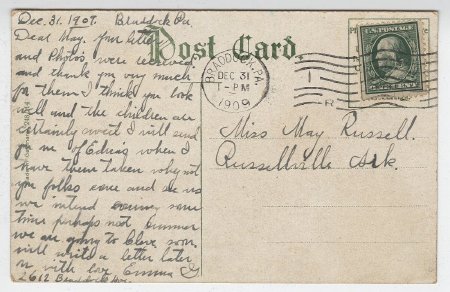 Dec. 31. 1909. Braddock Pa.
Dear May. Your letter
and Photos were received
and thank you very much
for them I think you look
well and the children are
certainly sweet I will send
you one of Edna's when I
have them taken why not
you folks come and see us
we intend coming some
time perhaps not summer
we are going to Cleve soon
will write a letter later
with love Emma
2612 Braddock Ave.
Post Card
BRADDOCK, PA.
DEC 31
1-PM
1909
U.S. POSTAGE
Miss May Russell.
Russellville Ark.